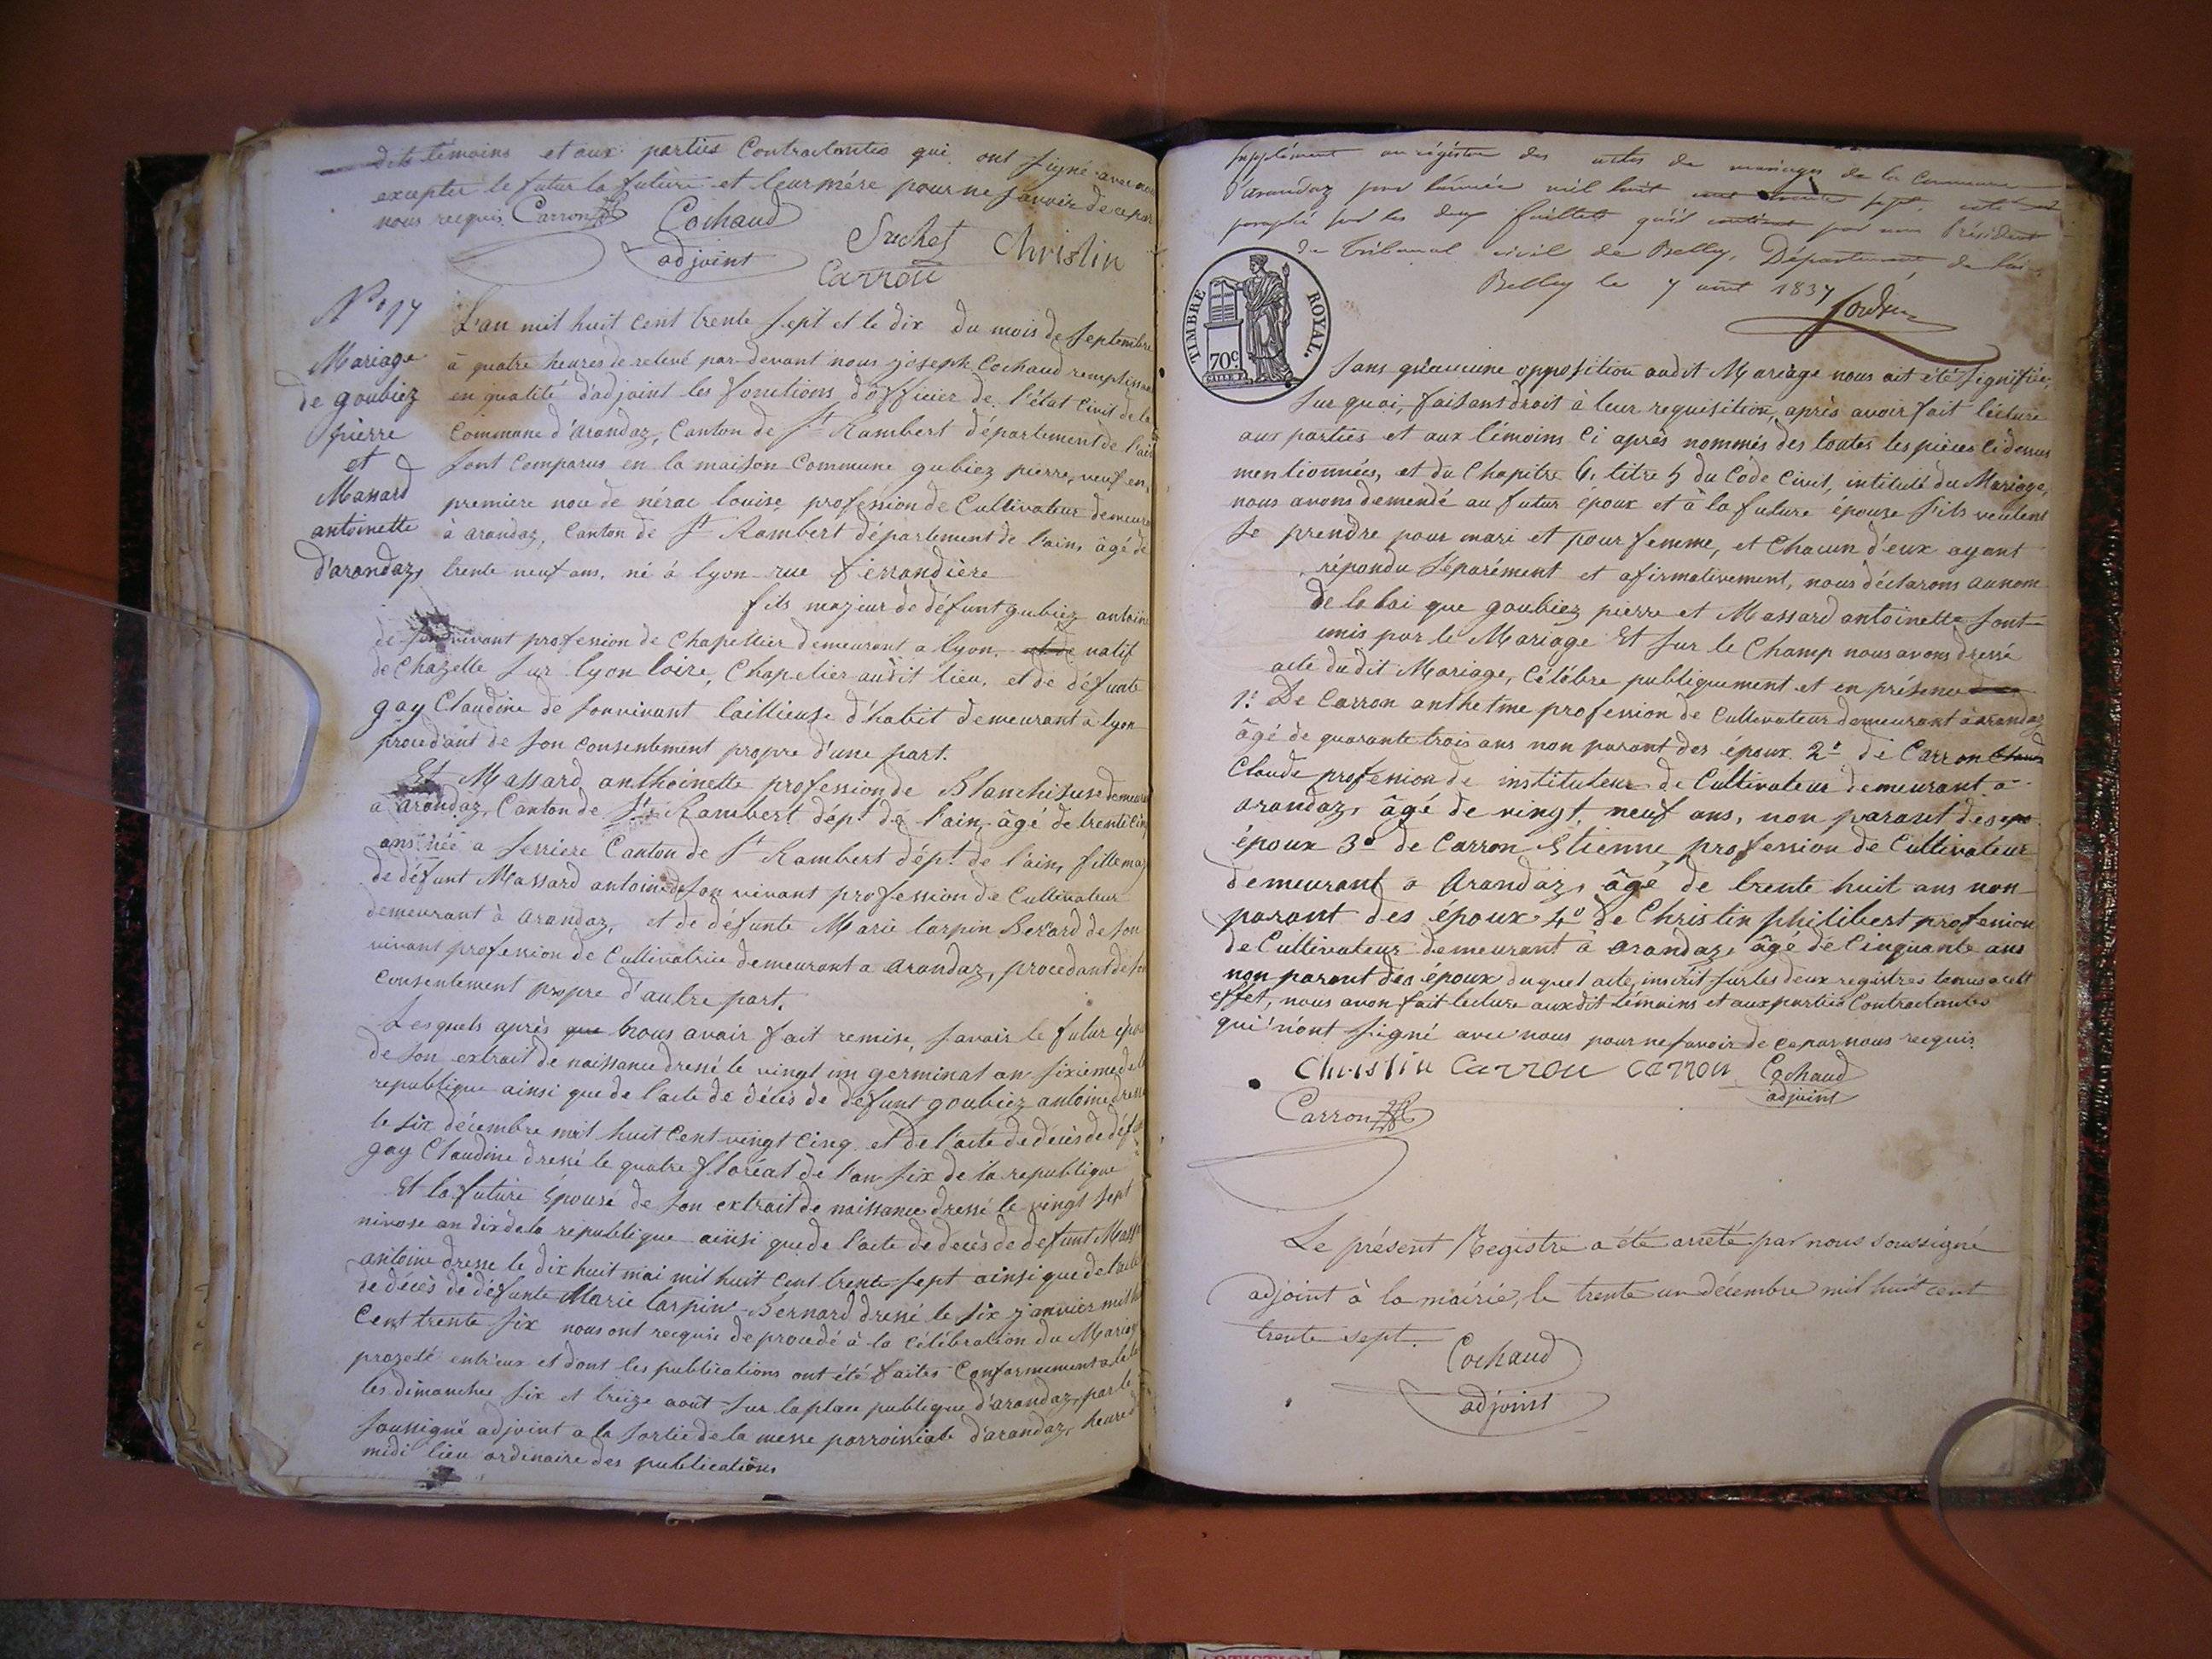 dits témoins et aux parties Contractantes qui ont signé avec nous
excepter le futur la future et leur mére pour ne savoir de ce par
nous requis Carron Cochaud
adjoint Suchet Christin
Carrou
N° 17
Mariage
de goubiez
pierre
et
Massard
antoinette
d'arandaz,
L'an mil huit cent trente sept et le dix du mois de Septembre
à quatre heures de relevé par-devant nous joseph Cochaud remplissant
en qualité d'adjoint les fonctions d'officier de l'état Civil de la
Commune d'arandaz, Canton de St Rambert département de l'ain
sont comparus en la maison Commune gubiez pierre, veuf en
premiere noce de nérac louise, profession de Cultivateur demeurant
à arandaz, Canton de St Rambert département de l'ain, âgé de
trente neuf ans, né à lyon rue ferrandière
fils majeur de défunt gubiez antoine
de son vivant profession de Chapellier demeurant a lyon. natif
de Chazelle sur lyon loire, Chapelier audit lieu, et de défunte
gay Claudine de son vivant taillieuse d'habit demeurant à lyon
procedant de son consentement propre d'une part.
Et Massard anthoinette profession de Blanchiseuse demeurant
a arandaz, Canton de St Rambert dépt de l'ain, âgé de trente cinq
ans née a serriere Canton de St Rambert dépt de l'ain, fille maj
de défunt Massard antoine de son vivant profession de Cultivateur
demeurant à arandaz, et de défunte Marie tarpin Berard de son
vivant profession de Cultivatrice demeurant a arandaz, procedant de son
consentement propre d'autre part.
Lesquels après que nous avoir fait remise, savoir le futur époux
de son extrait de naissance dressé le vingt un germinal an sixieme de la
republique ainsi que de l'acte de décès de défunt goubiez antoine dressé
le six décembre mil huit cent vingt cinq et de l'acte de décès de déft
gay Claudine dressé le quatre floréal de l'an six de la republique
Et la future Épouse de son extrait de naissance dressé le vingt sept
nivose an dix de la république ainsi que de l'acte de decès de défunt Mass
antoine dresse le dix huit mai mil huit cent trente sept ainsi que de l'acte
de décès de défunte Marie tarpin Bernard dressé le six janvier mil huit
Cent trente six nous ont requise de procedé à la célébration du Mariage
projeté entr'eux et dont les publications ont été faites Conformement à la loi
les dimanches six et treize août sur la place publique d'arandaz, par le
soussigné adjoint a la sortie de la messe parroissiale d'arandaz, heure de
midi lieu ordinaire des publications
Supplément au régistre des actes de mariages de la Commune
d'arandaz pour l'année mil huit cent trente sept, coté et
paraphé sur les deux feuillets qu'il contient par nous Président
du Tribunal civil de Belley, Département de l'ain
Belley le 7 aout 1837
TIMBRE ROYAL.
70c
sans qu'aucune opposition audit Mariage nous ait été signifiée,
sur quoi, faisant droit à leur requisition, après avoir fait lecture
aux parties et aux témoins ci après nommés des toutes les pièces ci dessus
mentionnées, et du Chapitre 6. titre 5 du Code Civil, intitulé du Mariage,
nous avons demendé au futur epoux et à la future épouse s'ils veulent
se prendre pour mari et pour femme, et Chacun d'eux ayant
répondu séparément et afirmativement, nous déclarons au nom
de la loi que goubiez pierre et Massard antoinette sont
unis par le Mariage Et sur le Champ nous avons dressé
acte dudit Mariage, Célébre publiquement et en présence
1° De Carron anthelme profession de Cultivateur demeurant à arandaz
âgé de quarante trois ans non parant des époux 2° de Carron
Claude profession de instituteur de Cultivateur demeurant a
arandaz, âgé de vingt, neuf ans, non parant des
époux 3° de Carron Etienne profession de Cultivateur
demeurant a Arandaz, âgé de trente huit ans non
parant des époux 4° de Christin philibert profession
de Cultivateur demeurant à arandaz, âgé de Cinquante ans
non parant des époux duquel acte, inscrit sur les deux registres tenus a cet
effet, nous avon fait lecture aux dit témoins et aux parties Contractantes
qui n'ont signé avec nous pour ne savoir de ce par nous requis
Christin Carrou Carron Cochaud
adjoint
Carron
Le présent Registre a été arreté par nous soussigné
adjoint à la mairie, le trente un décembre mil huit cent
trente sept.
Cochaud
adjoint